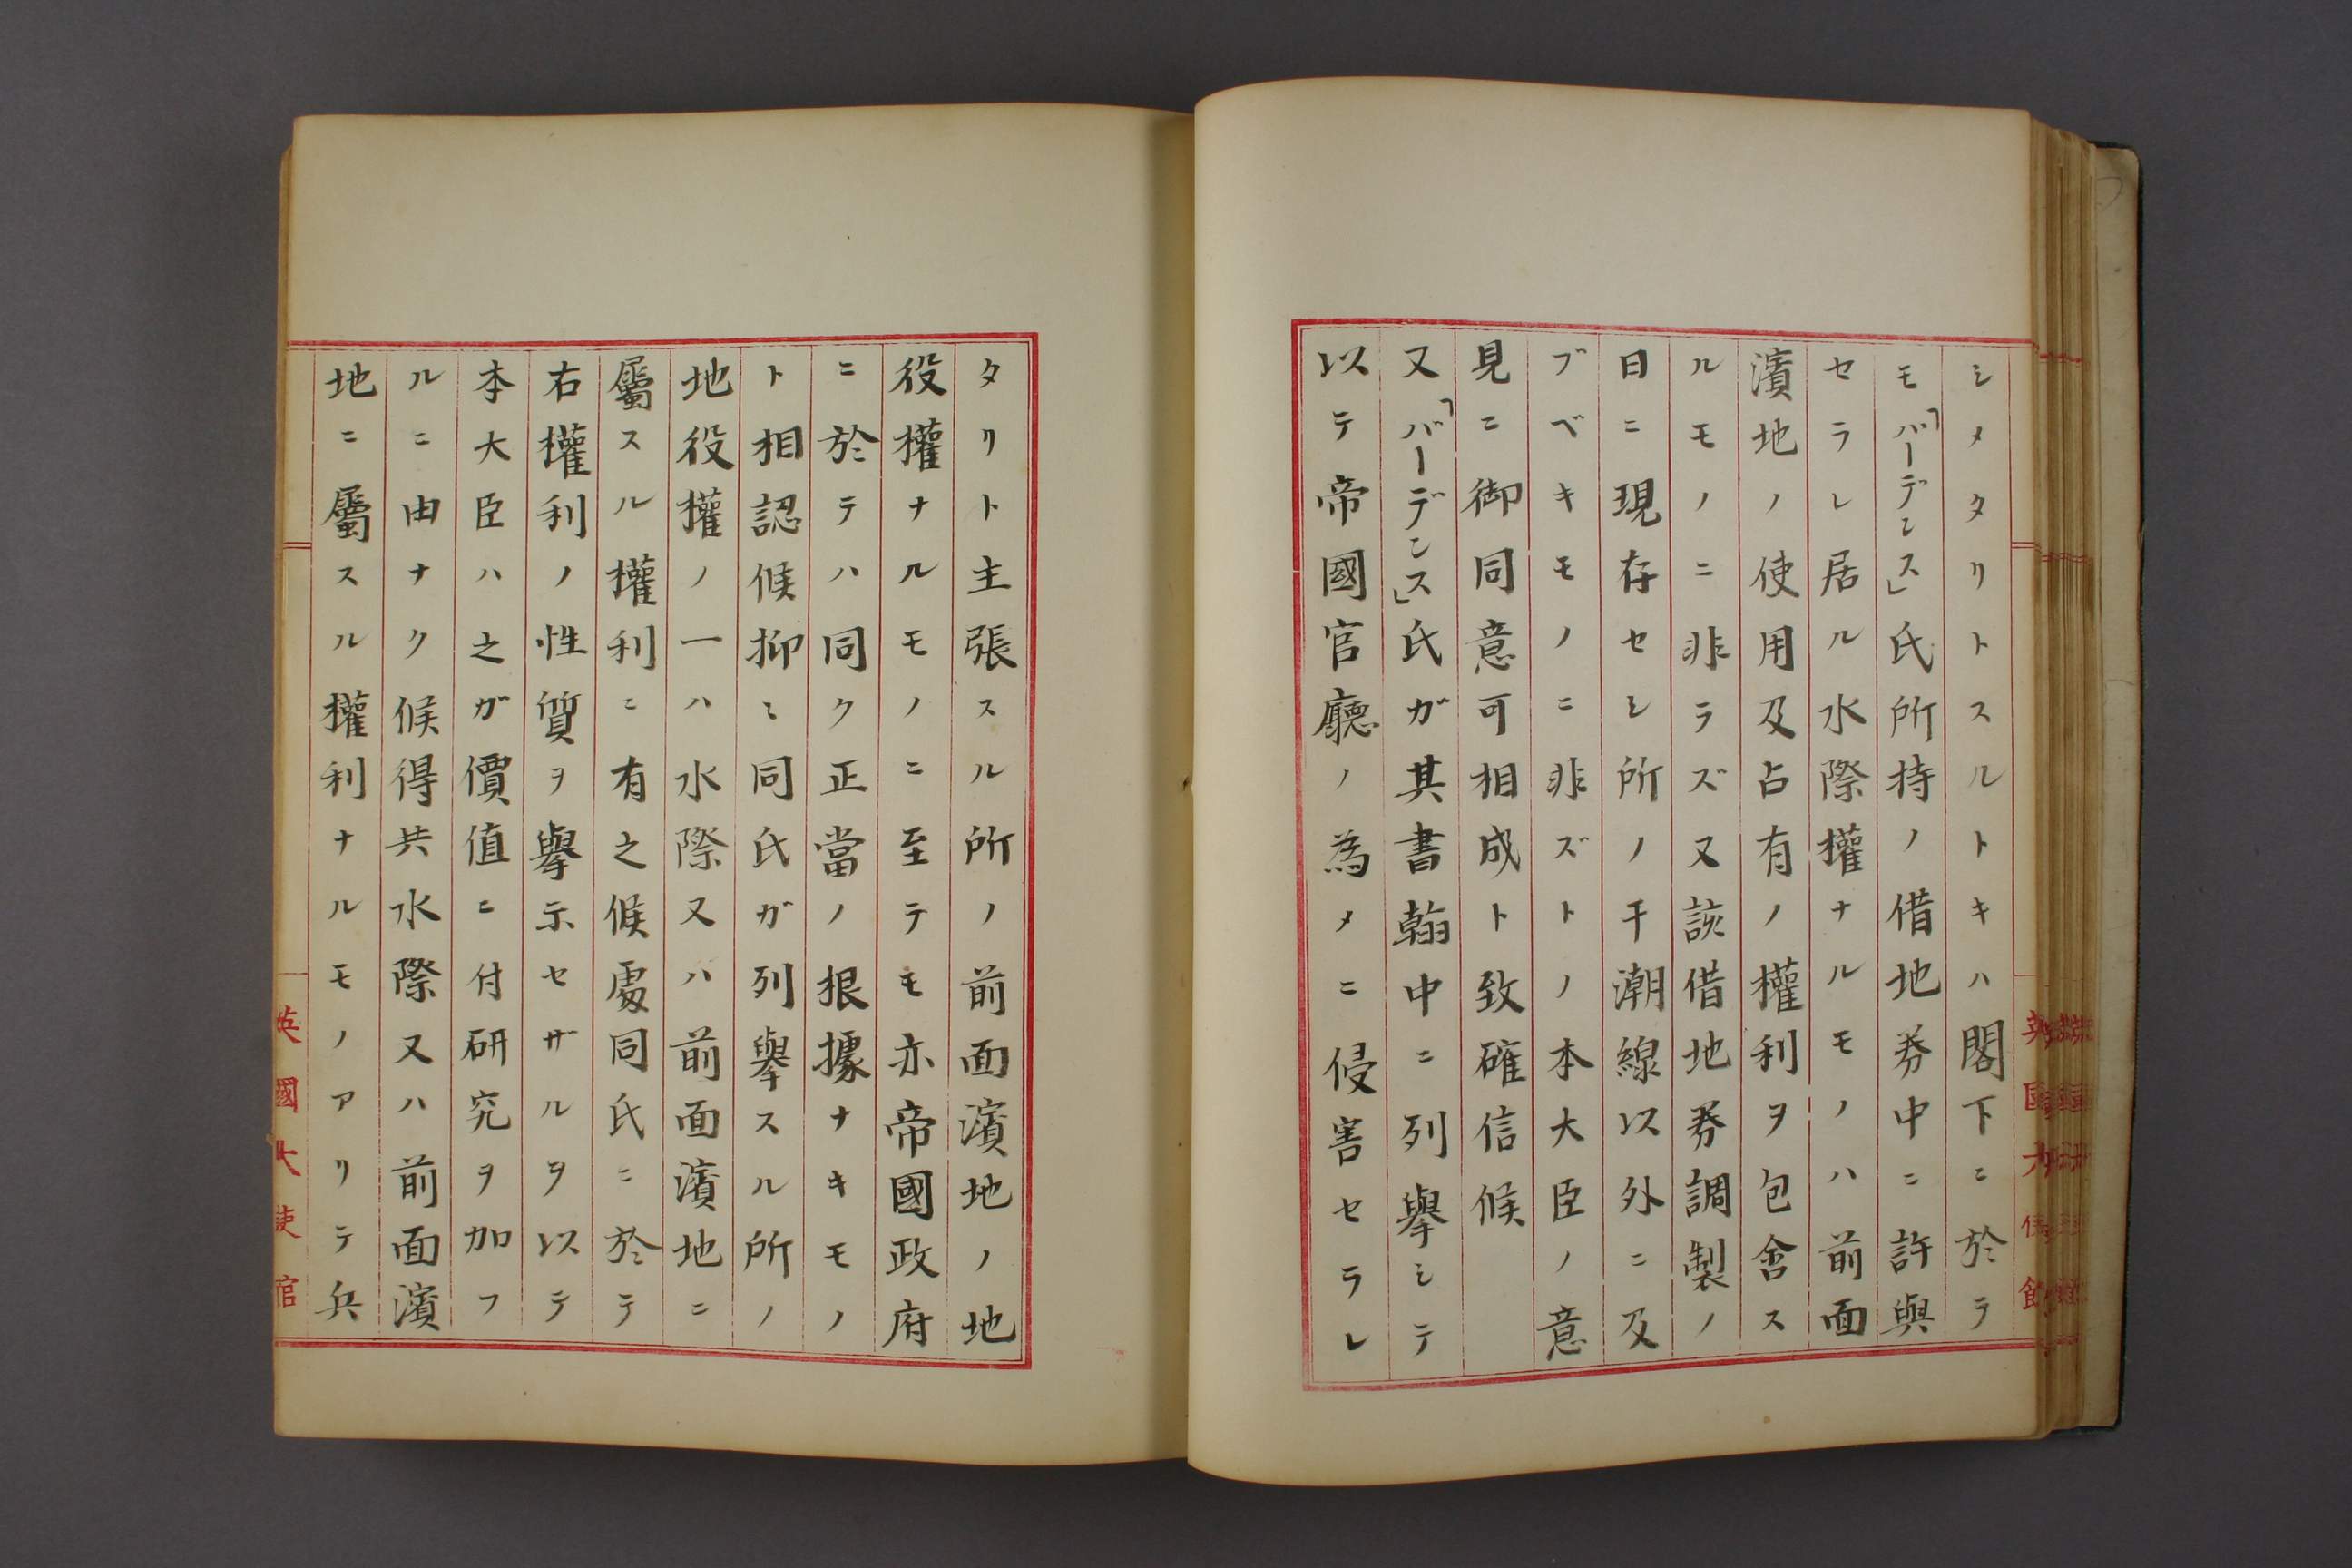 シメタリトスルトキハ閣下ニ於テ
モ「バーデンス」氏所持ノ借地券中ニ許與
セラレ居ル水際權ナルモノハ前面
濱地ノ使用及占有ノ權利ヲ包含ス
ルモノニ非ラズ又該借地券調製ノ
日ニ現存セシ所ノ干潮線以外ニ及
ブベキモノニ非ズトノ本大臣ノ意
見ニ御同意可相成ト致確信候
又「バーデンス」氏ガ其書翰中ニ列擧シテ
以テ帝國官廳ノ為メニ侵害セラレ
タリト主張スル所ノ前面濱地ノ地
役權ナルモノニ至テモ亦帝國政府
ニ於テハ同ク正當ノ根據ナキモノ
ト相認候抑ミ同氏ガ列擧スル所ノ
地役權ノ一ハ水際又ハ前面濱地ニ
屬スル權利ニ有之候處同氏ニ於テ
右權利ノ性質ヲ擧示セザルヲ以テ
本大臣ハ之ガ價值ニ付研究ヲ加フ
ルニ由ナク候得共水際又ハ前面濱
地ニ屬スル權利ナルモノアリテ兵
英國大使官